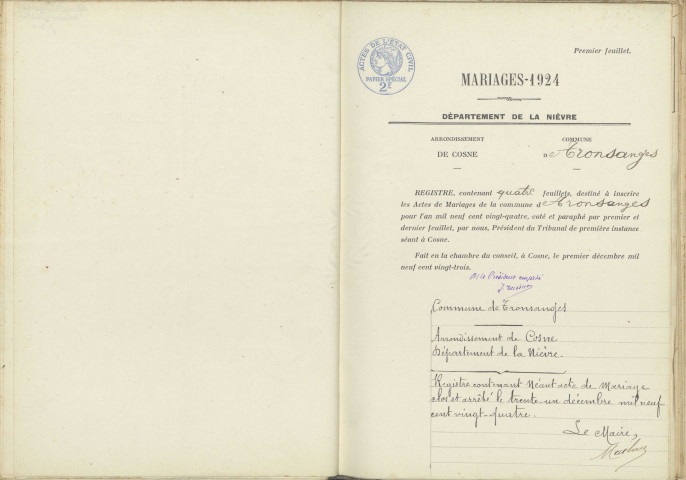 Premier feuillet.
ACTES DE L'ETAT CIVIL
PAPIER SPÉCIAL
2F
MARIAGES-1924
DÉPARTEMENT DE LA NIÈVRE
ARRONDISSEMENT
DE COSNE
COMMUNE
D Tronsanges
REGISTRE, contenant quatre feuillets, destiné à inscrire
les Actes de Mariages de la commune d Tronsanges
pour l'an mil neuf cent vingt-quatre, coté et paraphé par premier et
dernier feuillet, par nous, Président du Tribunal de première instance
séant à Cosne.
Fait en la chambre du conseil, à Cosne, le premier décembre mil
neuf cent vingt-trois.
Le Président empêché
Commune de Tronsanges
Arrondissement de Cosne
Département de la Nièvre.
Registre contenant Néant acte de Mariage
clos et arrêté le trente-un décembre mil neuf
cent vingt-quatre.
Le Maire,